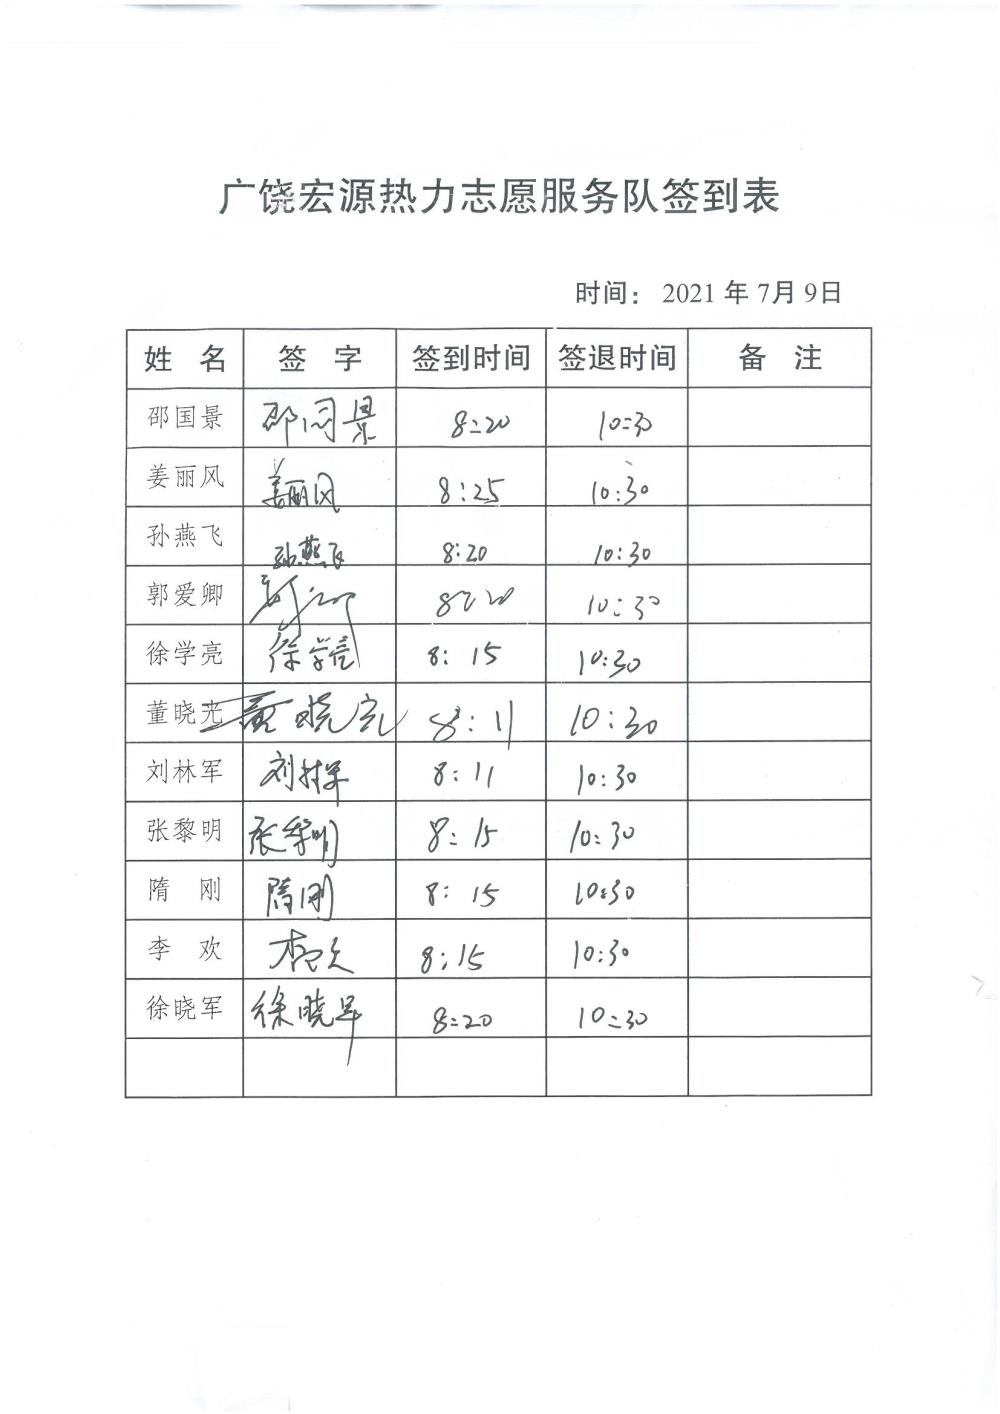 广饶宏源热力志愿服务队签到表
时间： 2021 年 7月 9日
姓 名 签 字 签到时间 签退时间 备 注
邵国景 邵国景 8:20 10:30
姜丽风 姜丽风 8:25 10:30
孙燕飞 孙燕飞 8:20 10:30
郭爱卿 8:20 10:30
徐学亮 徐学亮 8:15 10:30
董晓光 董晓光 8:11 10:30
刘林军 刘林军 8:11 10:30
张黎明 张黎明 8:15 10:30
隋 刚 隋刚 8:15 10:30
李 欢 李欢 8:15 10:30
徐晓军 徐晓军 8:20 10:30